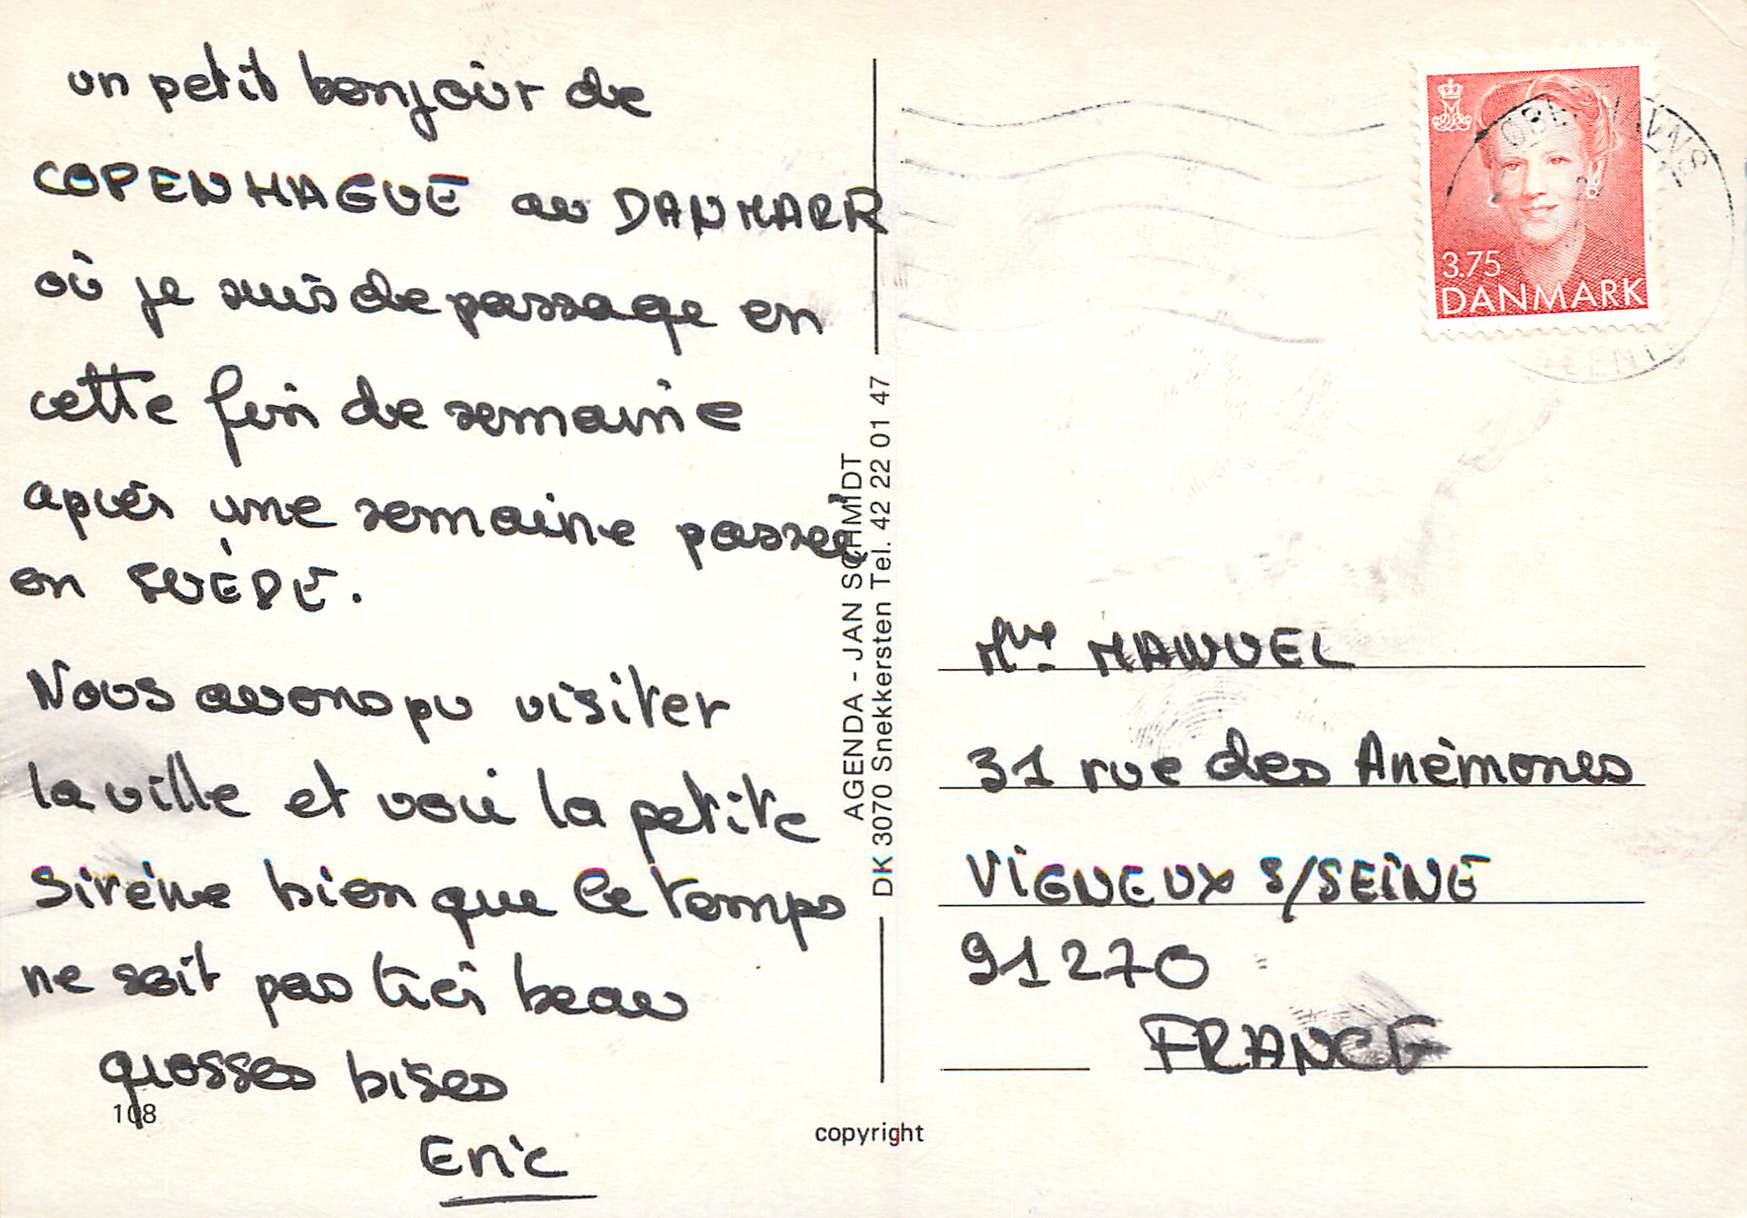 un petit bonjour de
COPENHAGUE au DANMARK
où je suis de passage en
cette fin de semaine
après une semaine passée
en SUÈDE.
Nous avons pu visiter
la ville et voir la petite
Sirène bien que le temps
ne soit pas très beau
grosses bises
Eric
108
AGENDA - JAN SCHMIDT
DK 3070 Snekkersten Tel. 42 22 01 47
copyright
3.75
DANMARK
MANUEL
31 rue des Anémones
VIGNEUX S/SEINE
91270
FRANCE